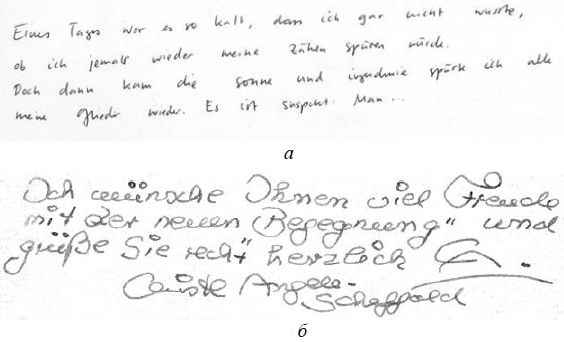 Eines Tages war es so kalt, dass ich gar nicht wusste,
ob ich jemals wieder meine Zähen spüren würde.
Doch dann kam die Sonne und irgendwie spürte ich alle
meine Glieder wieder. Es ist suspekt. Man...
а
Ich wünsche Ihnen viel Freude
mit der neuen „Begegnung" und
grüße Sie recht herzlich
Angela-
б